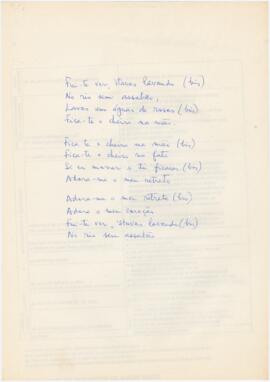 Fui-te ver, 'stavas lavando (bis)
No rio sem assabão,
Lavas em águas de rosas (bis)
Fica-te o cheiro na mão.
Fica-te o cheiro na mão (bis)
Fica-te o cheiro no fato
Se eu morrer e tu ficares (bis)
Adora-me o meu retrato
Adora-me o meu retrato (bis)
Adora o meu coração
Fui-te ver, 'stavas lavando (bis)
No rio sem assabão